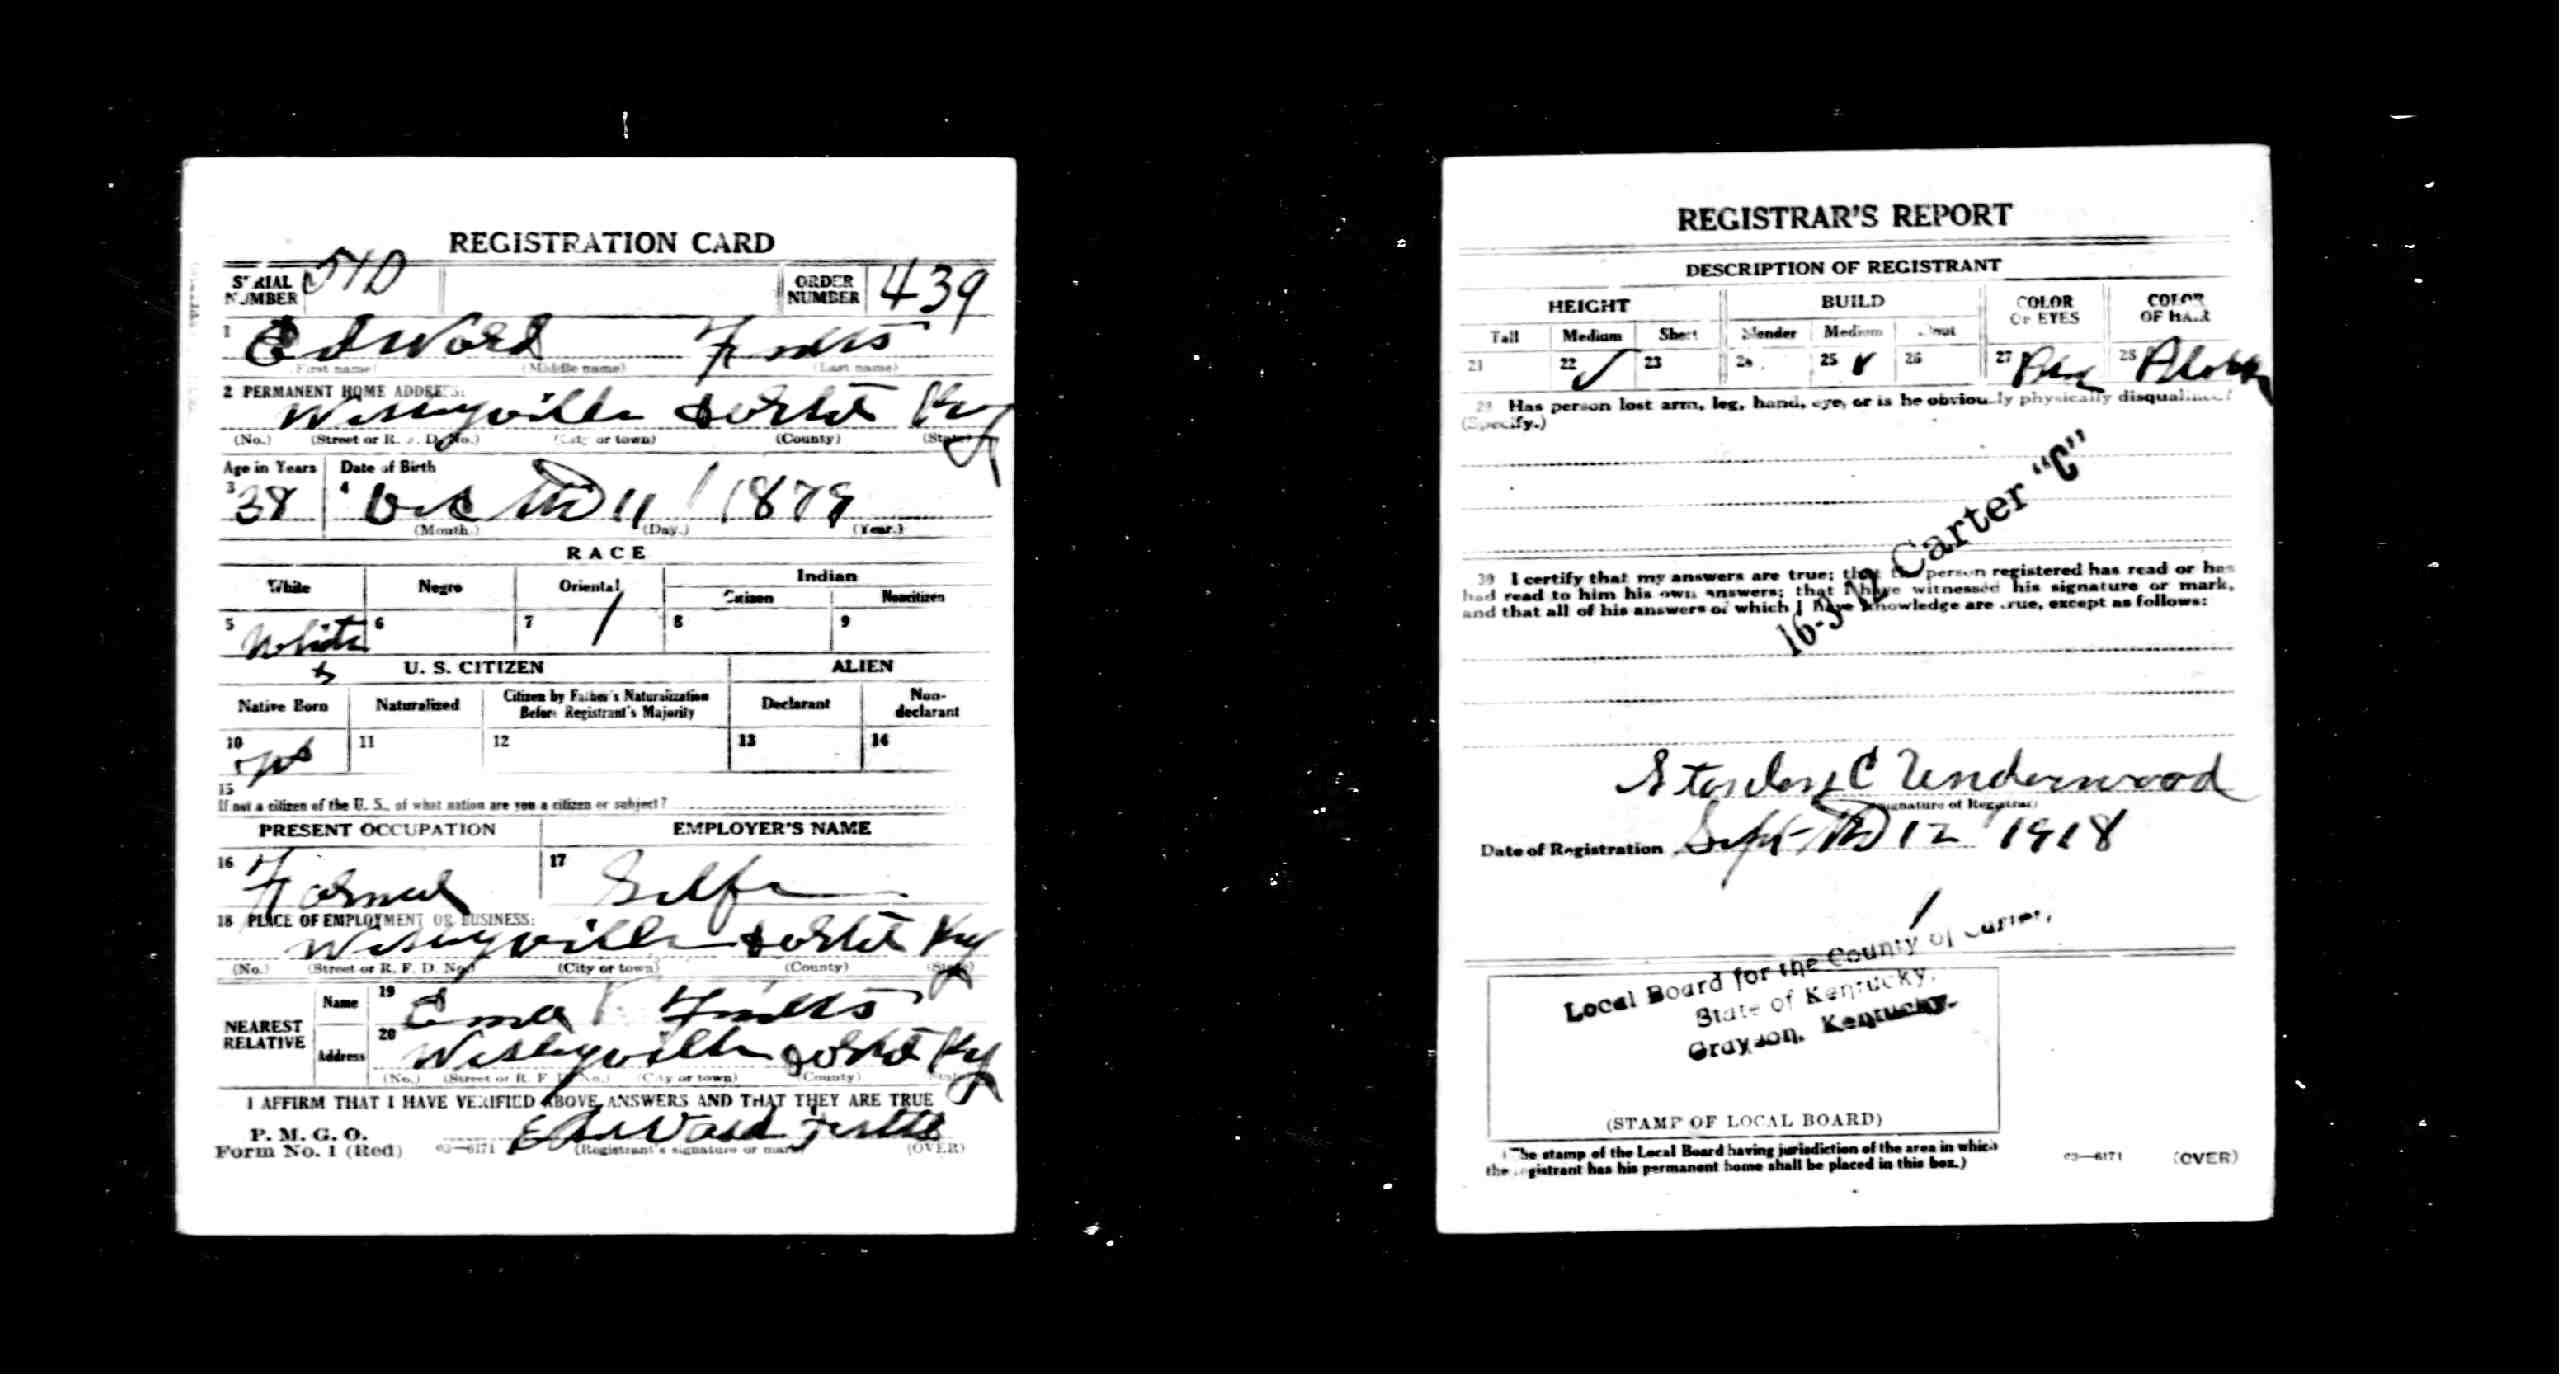 REGISTRATION CARD
SERIAL NUMBER
ORDER NUMBER 439
1 Edward
(First name) (Middle name) (Last name)
2 PERMANENT HOME ADDRESS:
Wesleyville Carter Ky
(No.) (Street or R. F. D. No.) (City or town) (County) (State)
Age in Years Date of Birth
3 38 4 11 1879
(Month.) (Day.) (Year.)
RACE
White Negro Oriental Indian
Citizen Noncitizen
5 White 6 7 8 9
U. S. CITIZEN ALIEN
Native Born Naturalized Citizen by Father's Naturalization Before Registrant's Majority Declarant Non-declarant
10 11 12 13 14
15
If not a citizen of the U. S., of what nation are you a citizen or subject?
PRESENT OCCUPATION EMPLOYER'S NAME
16 Farmer 17 Self
18 PLACE OF EMPLOYMENT OR BUSINESS:
Wesleyville Carter Ky
(No.) (Street or R. F. D. No.) (City or town) (County) (State)
NEAREST RELATIVE
Name 19
Address 20 Wesleyville Carter Ky
(No.) (Street or R. F. D. No.) (City or town) (County) (State)
I AFFIRM THAT I HAVE VERIFIED ABOVE ANSWERS AND THAT THEY ARE TRUE
P. M. G. O.
Form No. 1 (Red) 03—6171 Edward
(Registrant's signature or mark) (OVER)
REGISTRAR'S REPORT
DESCRIPTION OF REGISTRANT
HEIGHT BUILD COLOR OF EYES COLOR OF HAIR
Tall Medium Short Slender Medium Stout
21 22 ✓ 23 24 25 ✓ 26 27 28
29 Has person lost arm, leg, hand, eye, or is he obviously physically disqualified?
(Specify.)
16-3-12 Carter "C"
30 I certify that my answers are true; that the person registered has read or has
had read to him his own answers; that I have witnessed his signature or mark,
and that all of his answers of which I have knowledge are true, except as follows:
C Underwood
(Signature of Registrar)
Date of Registration Sept 12 1918
Local Board for the County of Carter,
State of Kentucky,
Grayson, Kentucky.
(STAMP OF LOCAL BOARD)
(The stamp of the Local Board having jurisdiction of the area in which
the registrant has his permanent home shall be placed in this box.)
03—6171 (OVER)